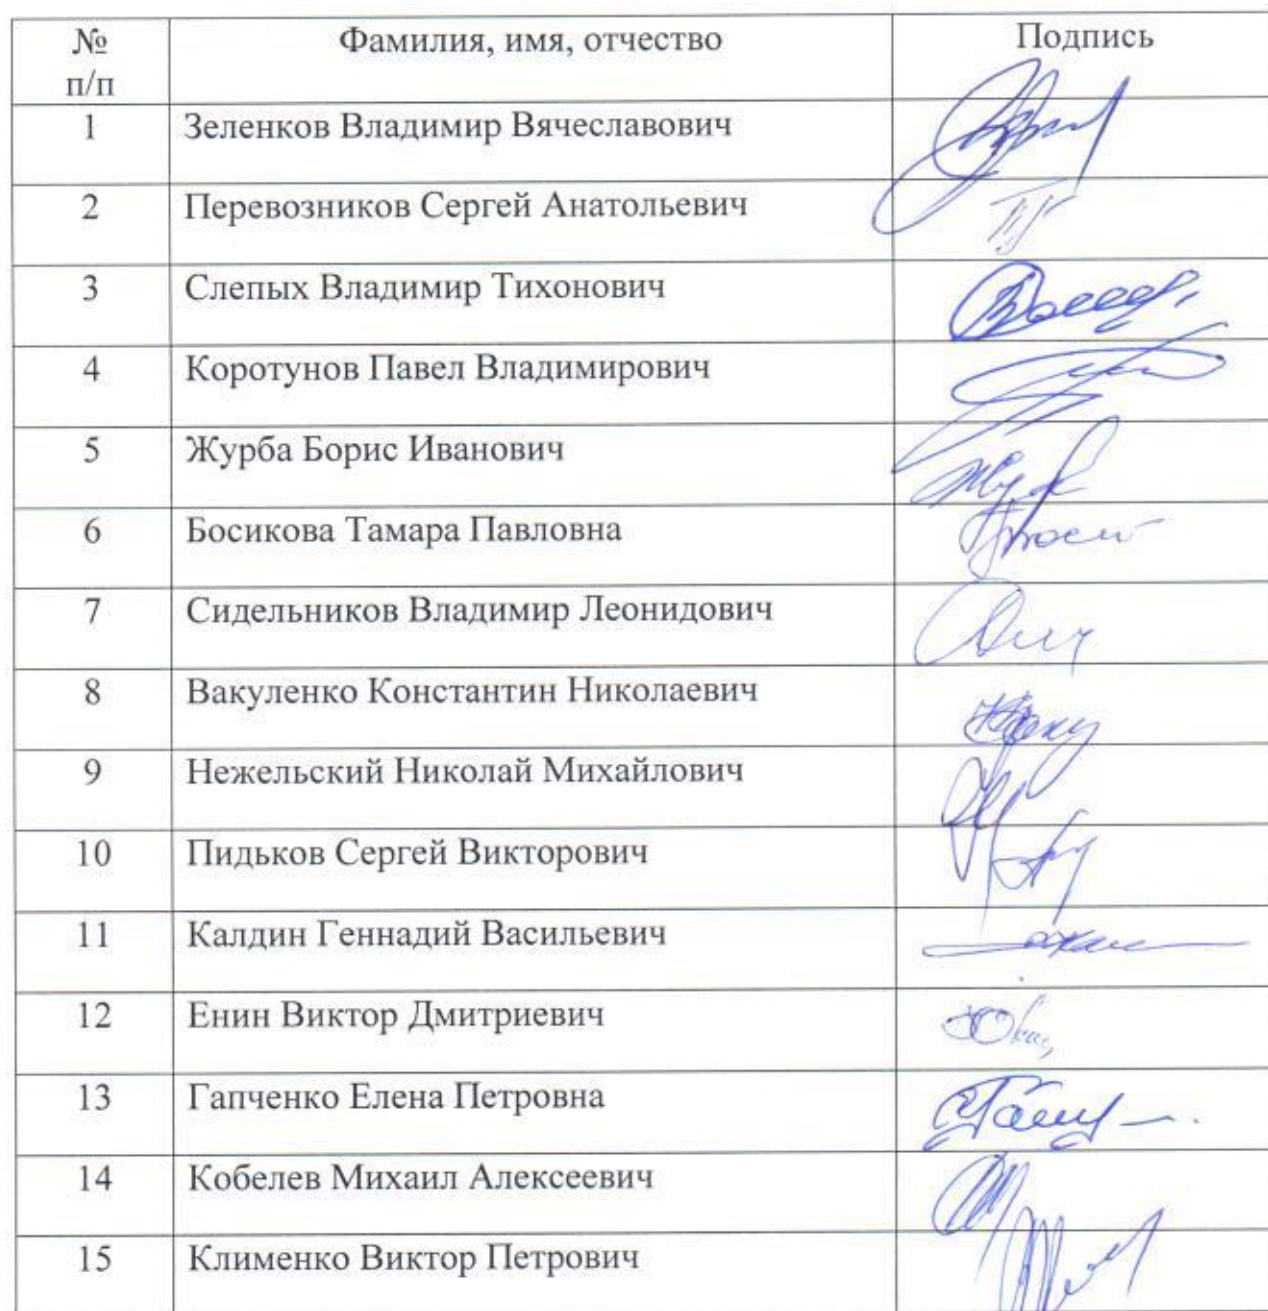 №
п/п
Фамилия, имя, отчество
Подпись
1 Зеленков Владимир Вячеславович
2 Перевозников Сергей Анатольевич
3 Слепых Владимир Тихонович
4 Коротунов Павел Владимирович
5 Журба Борис Иванович
6 Босикова Тамара Павловна
7 Сидельников Владимир Леонидович
8 Вакуленко Константин Николаевич
9 Нежельский Николай Михайлович
10 Пидьков Сергей Викторович
11 Калдин Геннадий Васильевич
12 Енин Виктор Дмитриевич
13 Гапченко Елена Петровна
14 Кобелев Михаил Алексеевич
15 Клименко Виктор Петрович